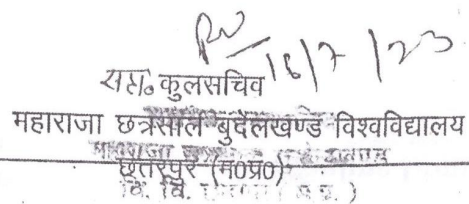 16/7/23
सहा० कुलसचिव
महाराजा छत्रसाल बुंदेलखण्ड विश्वविद्यालय
छतरपुर (म०प्र०)
वि. वि.